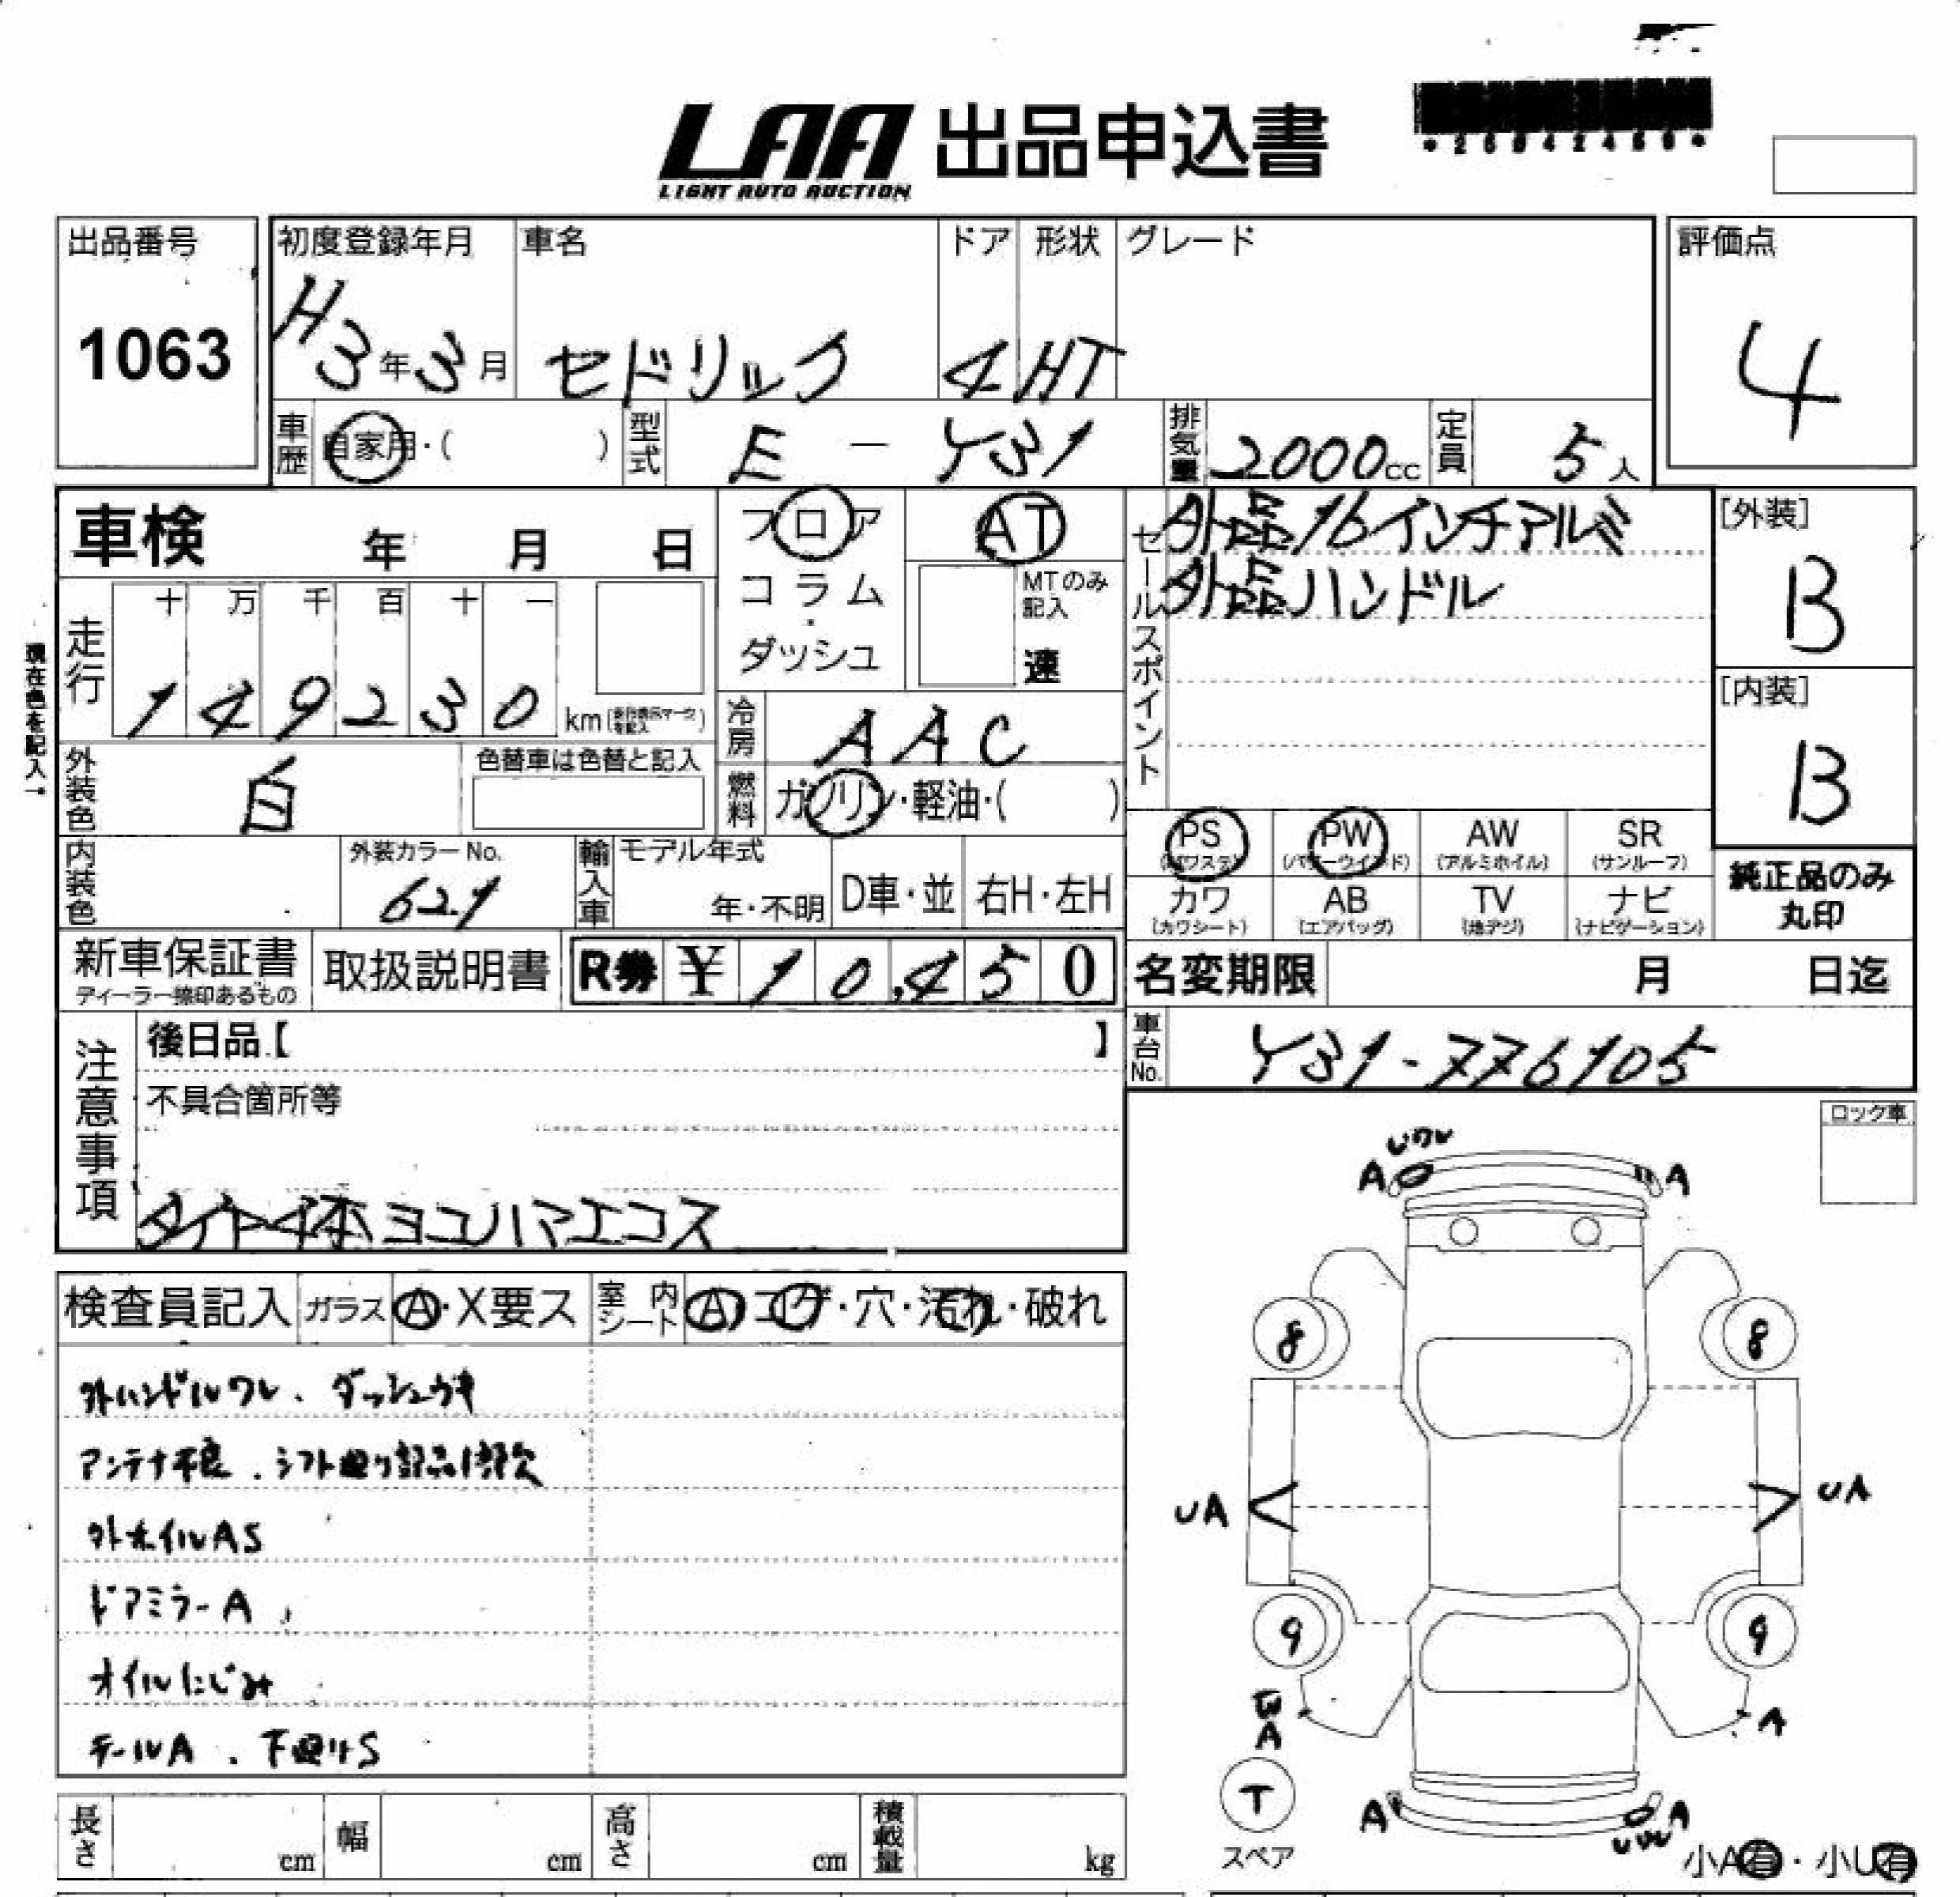 LAA 出品申込書
LIGHT AUTO AUCTION
出品番号
1063
初度登録年月
H3年3月
車名
セドリック
ドア
4
形状
HT
グレード
評価点
4
車歴 自家用・( )
型式 E - Y31
排気量 2000cc
定員 5人
車検 年 月 日
フロア
コラム
・
ダッシュ
AT
MTのみ記入
速
セールスポイント
外品16インチアルミ
外品ハンドル
[外装]
B
[内装]
B
現在色を記入→
走行
十 万 千 百 十 一
1 4 9 2 3 0 km
外装色 白
色替車は色替と記入
冷房 AAC
燃料 ガソリン・軽油・( )
PS (パワステ)
PW (パワーウインド)
AW (アルミホイル)
SR (サンルーフ)
カワ (カワシート)
AB (エアバッグ)
TV (地デジ)
ナビ (ナビゲーション)
純正品のみ
丸印
内装色
外装カラーNo.
621
輸入車
モデル年式
年・不明
D車・並
右H・左H
新車保証書
ディーラー捺印あるもの
取扱説明書
R券 ¥ 10,450
名変期限 月 日迄
車台No. Y31-776105
注意事項
後日品【 】
不具合箇所等
タイヤ4本ヨコハマエコス
ロック車
検査員記入
ガラス A・X要ス
室内シート A・コゲ・穴・汚れ・破れ
外ハンドルワレ、ダッシュウキ
アンテナ不良、シフト廻り部品1部欠
外ホイルAS
ドアミラーA
オイルにじみ
テールA、下廻りS
長さ cm
幅 cm
高さ cm
積載量 kg
A A
8 8
UA UA
9 9
A A
T
スペア
A A
小A有・小U有